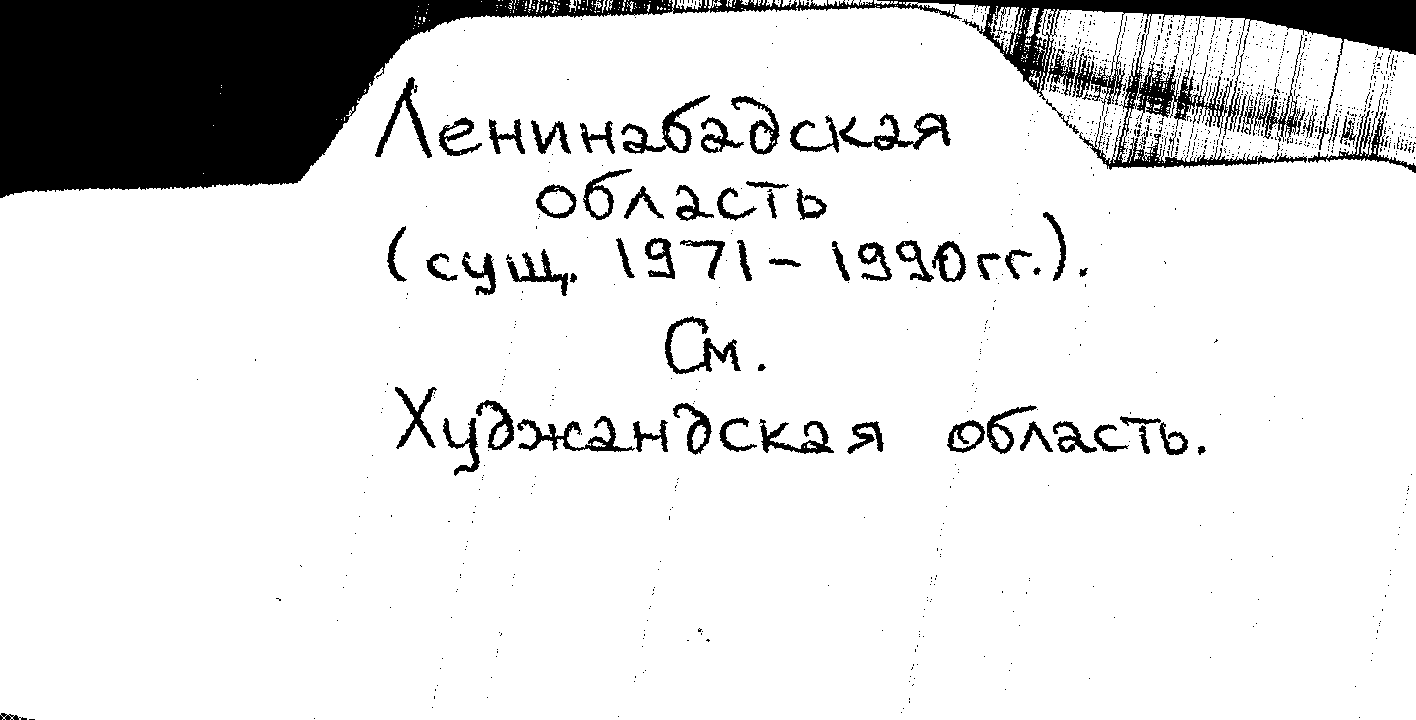 Ленинабадская
область
(сущ. 1971-1990гг.).
См.
Худжандская область.